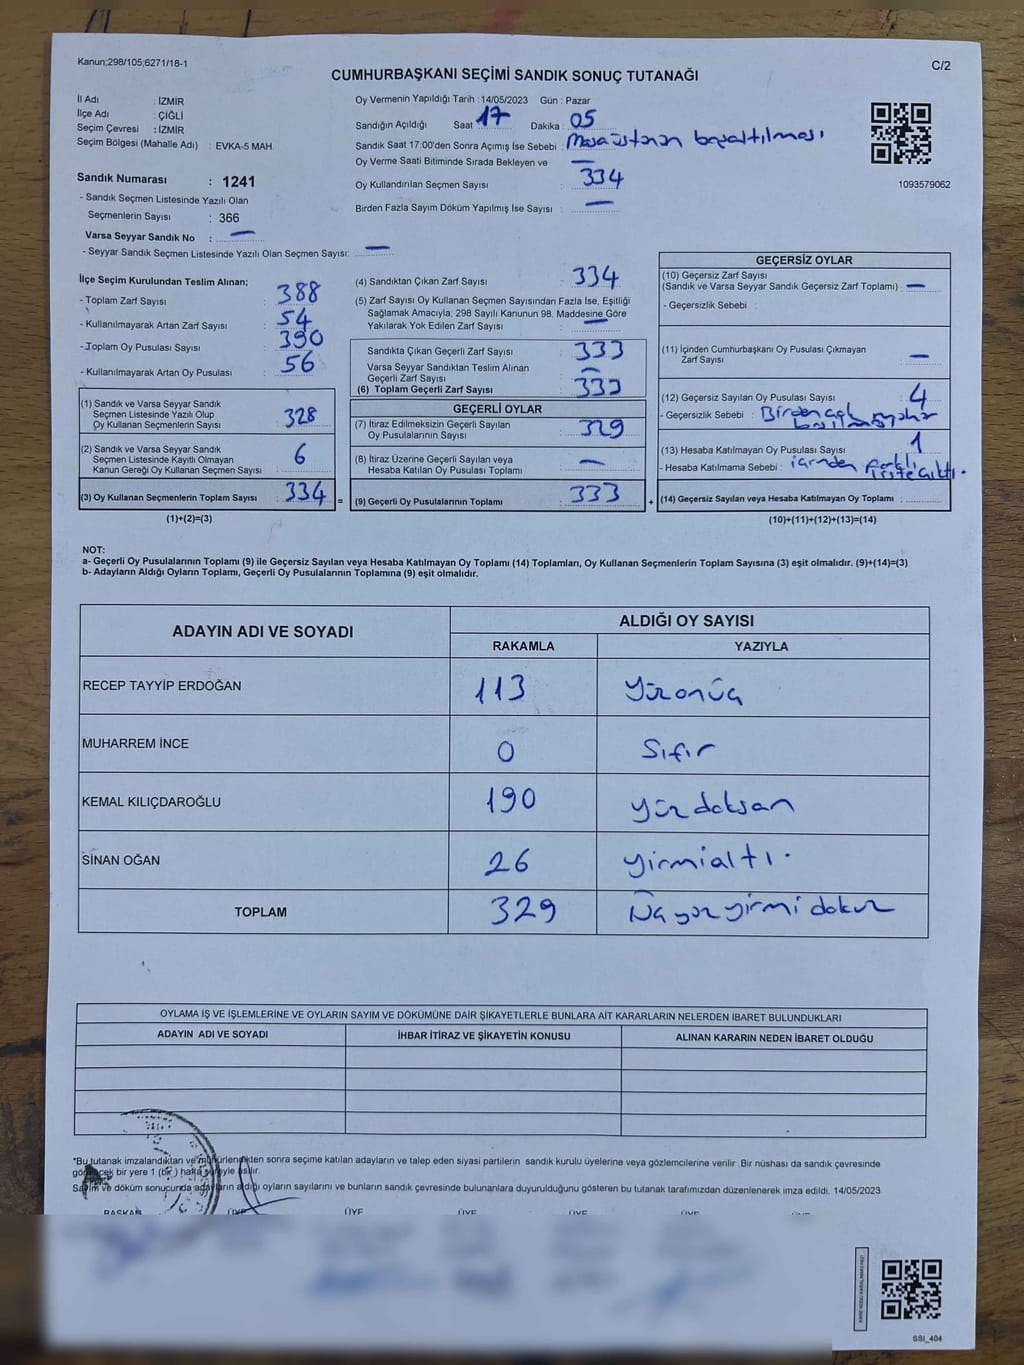 Kanun;298/105;6271/18-1
C/2
CUMHURBAŞKANI SEÇİMİ SANDIK SONUÇ TUTANAĞI
İl Adı : İZMİR
İlçe Adı : ÇİĞLİ
Seçim Çevresi : İZMİR
Seçim Bölgesi (Mahalle Adı) : EVKA-5 MAH.
Sandık Numarası : 1241
- Sandık Seçmen Listesinde Yazılı Olan
Seçmenlerin Sayısı : 366
Varsa Seyyar Sandık No : —
- Seyyar Sandık Seçmen Listesinde Yazılı Olan Seçmen Sayısı: —
Oy Vermenin Yapıldığı Tarih : 14/05/2023 Gün : Pazar
Sandığın Açıldığı Saat : 17 Dakika : 05
Sandık Saat 17:00'den Sonra Açımış İse Sebebi : Masaüstünün boşaltılması
Oy Verme Saati Bitiminde Sırada Bekleyen ve —
Oy Kullandırılan Seçmen Sayısı : 334
Birden Fazla Sayım Döküm Yapılmış İse Sayısı : —
1093579062
İlçe Seçim Kurulundan Teslim Alınan;
- Toplam Zarf Sayısı : 388
- Kullanılmayarak Artan Zarf Sayısı : 54
- Toplam Oy Pusulası Sayısı : 390
- Kullanılmayarak Artan Oy Pusulası : 56
(1) Sandık ve Varsa Seyyar Sandık
Seçmen Listesinde Yazılı Olup
Oy Kullanan Seçmenlerin Sayısı : 328
(2) Sandık ve Varsa Seyyar Sandık
Seçmen Listesinde Kayıtlı Olmayan
Kanun Gereği Oy Kullanan Seçmen Sayısı : 6
(3) Oy Kullanan Seçmenlerin Toplam Sayısı : 334 =
(1)+(2)=(3)
(4) Sandıktan Çıkan Zarf Sayısı : 334
(5) Zarf Sayısı Oy Kullanan Seçmen Sayısından Fazla İse, Eşitliği
Sağlamak Amacıyla; 298 Sayılı Kanunun 98. Maddesine Göre
Yakılarak Yok Edilen Zarf Sayısı : —
Sandıkta Çıkan Geçerli Zarf Sayısı : 333
Varsa Seyyar Sandıktan Teslim Alınan
Geçerli Zarf Sayısı : —
(6) Toplam Geçerli Zarf Sayısı : 333
GEÇERLİ OYLAR
(7) İtiraz Edilmeksizin Geçerli Sayılan
Oy Pusulalarının Sayısı : 329
(8) İtiraz Üzerine Geçerli Sayılan veya
Hesaba Katılan Oy Pusulası Toplamı : —
(9) Geçerli Oy Pusulalarının Toplamı : 333 +
GEÇERSİZ OYLAR
(10) Geçersiz Zarf Sayısı
(Sandık ve Varsa Seyyar Sandık Geçersiz Zarf Toplamı) : —
- Geçersizlik Sebebi :
(11) İçinden Cumhurbaşkanı Oy Pusulası Çıkmayan
Zarf Sayısı : —
(12) Geçersiz Sayılan Oy Pusulası Sayısı : 4
- Geçersizlik Sebebi :
(13) Hesaba Katılmayan Oy Pusulası Sayısı : 1
- Hesaba Katılmama Sebebi : içinden farklı liste çıktı.
(14) Geçersiz Sayılan veya Hesaba Katılmayan Oy Toplamı :
(10)+(11)+(12)+(13)=(14)
NOT:
a- Geçerli Oy Pusulalarının Toplamı (9) ile Geçersiz Sayılan veya Hesaba Katılmayan Oy Toplamı (14) Toplamları, Oy Kullanan Seçmenlerin Toplam Sayısına (3) eşit olmalıdır. (9)+(14)=(3)
b- Adayların Aldığı Oyların Toplamı, Geçerli Oy Pusulalarının Toplamına (9) eşit olmalıdır.
ADAYIN ADI VE SOYADI
ALDIĞI OY SAYISI
RAKAMLA YAZIYLA
RECEP TAYYİP ERDOĞAN 113 Yüzonüç
MUHARREM İNCE 0 Sıfır
KEMAL KILIÇDAROĞLU 190 yüzdoksan
SİNAN OĞAN 26 yirmialtı.
TOPLAM 329 Üçyüzyirmidokuz
OYLAMA İŞ VE İŞLEMLERİNE VE OYLARIN SAYIM VE DÖKÜMÜNE DAİR ŞİKAYETLERLE BUNLARA AİT KARARLARIN NELERDEN İBARET BULUNDUKLARI
ADAYIN ADI VE SOYADI İHBAR İTİRAZ VE ŞİKAYETİN KONUSU ALINAN KARARIN NEDEN İBARET OLDUĞU
*Bu tutanak imzalandıktan ve mühürlendikten sonra seçime katılan adayların ve talep eden siyasi partilerin sandık kurulu üyelerine veya gözlemcilerine verilir .Bir nüshası da sandık çevresinde
görülecek bir yere 1 (bir ) hafta süreyle asılır.
Sayım ve döküm sonucunda adayların aldığı oyların sayılarını ve bunların sandık çevresinde bulunanlara duyurulduğunu gösteren bu tutanak tarafımızdan düzenlenerek imza edildi. 14/05/2023
BAŞKAN ÜYE ÜYE ÜYE ÜYE ÜYE ÜYE
SSI_404